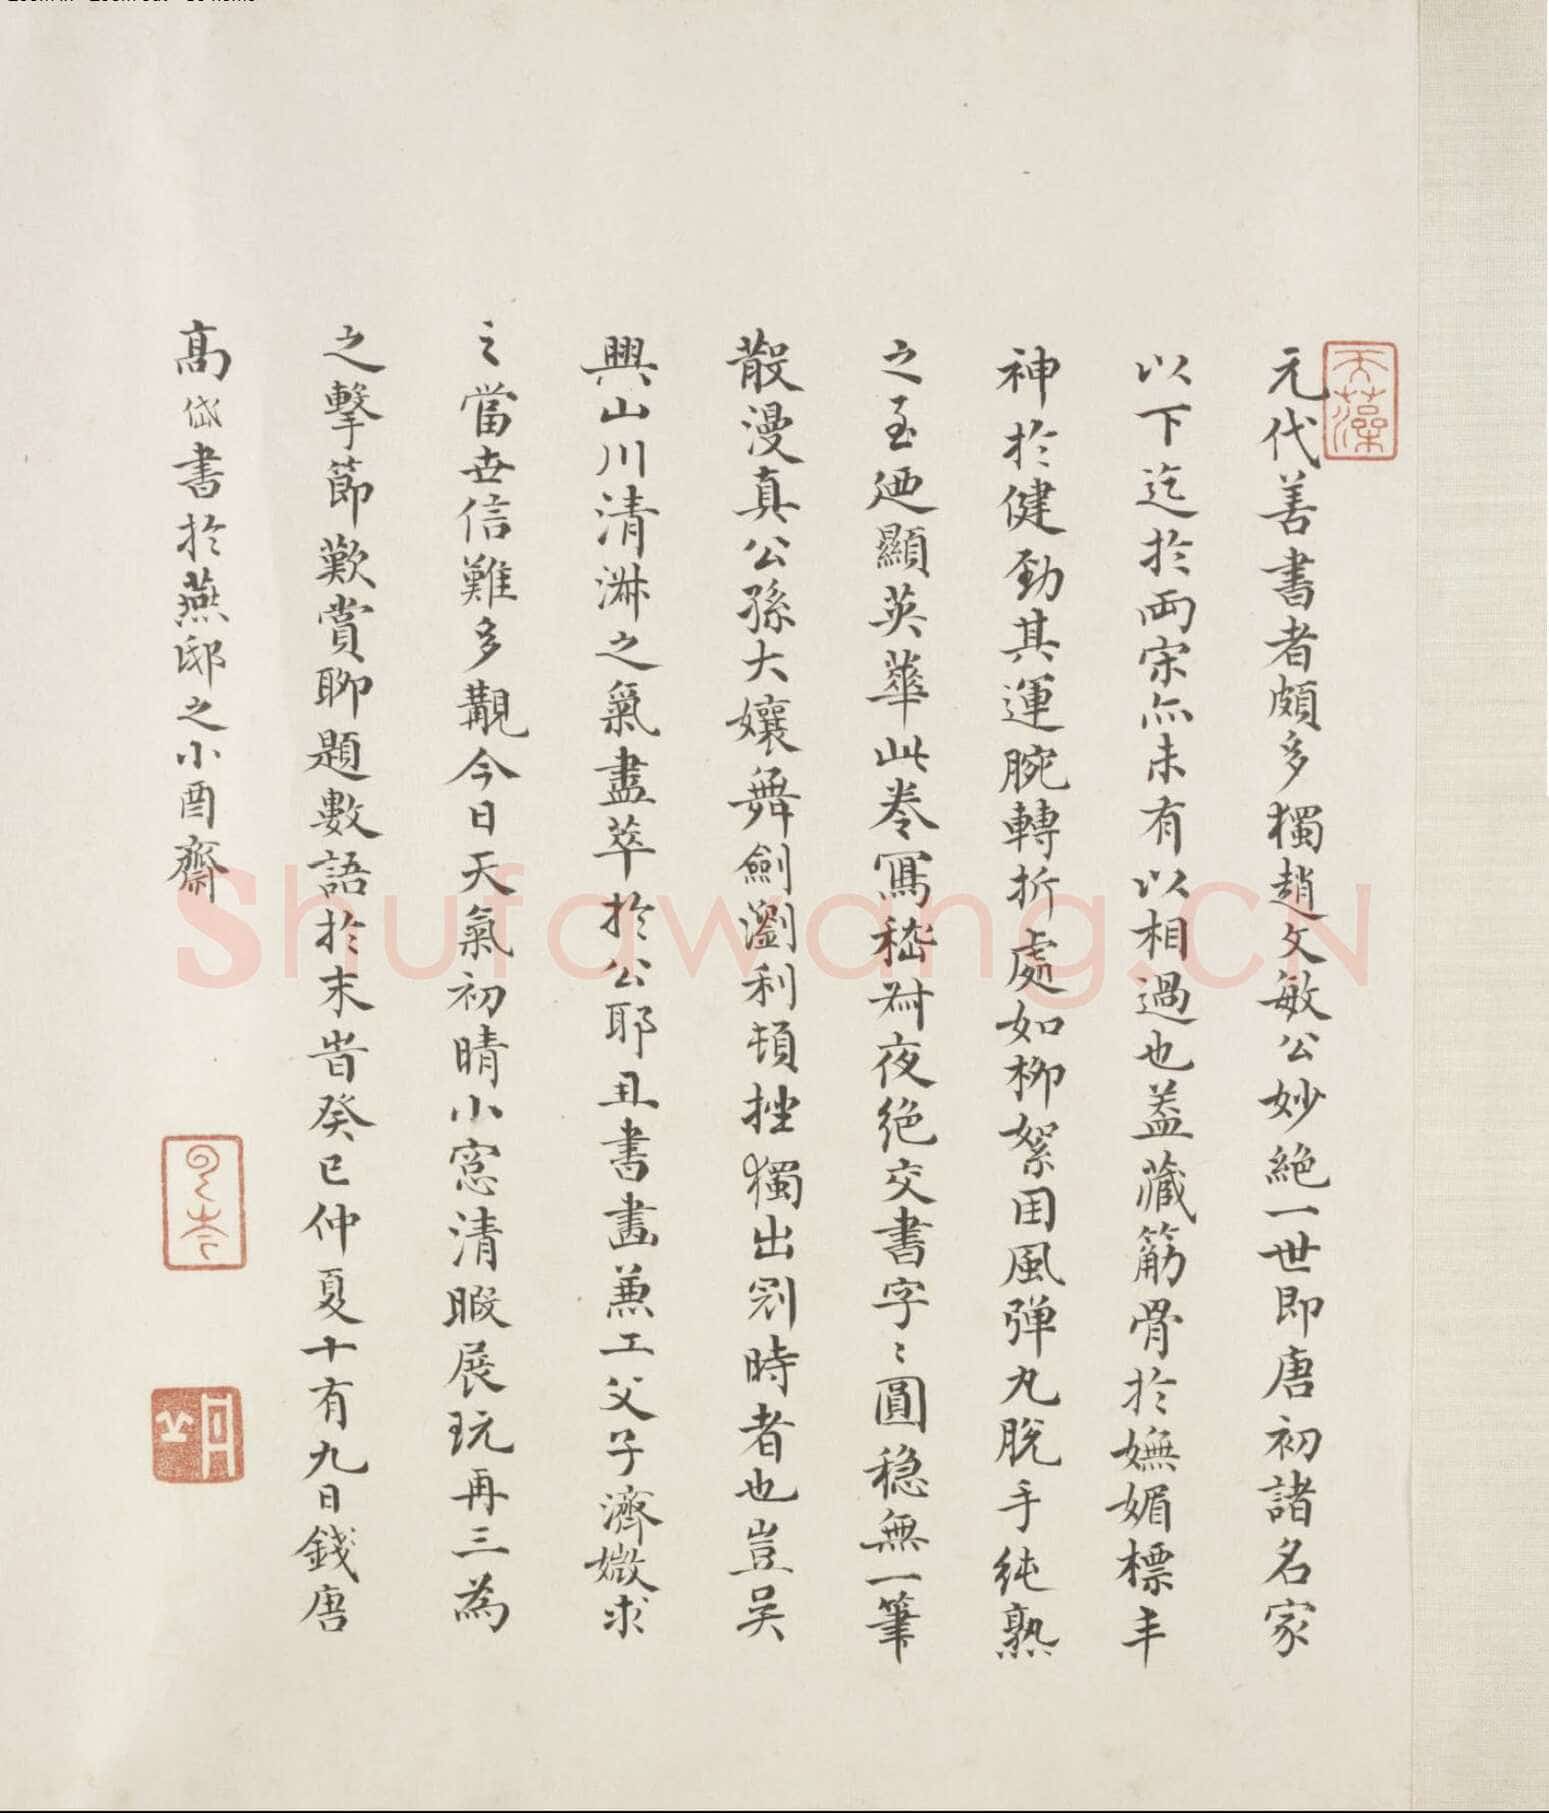 元代善書者頗多獨趙文敏公妙絕一世即唐初諸名家
以下迄於兩宋亦未有以相過也蓋藏筋骨於嫵媚標丰
神於健勁其運腕轉折處如柳絮因風彈丸脫手純熟
之至迺顯英華此卷寫嵇叔夜絕交書字〻圓穩無一筆
散漫真公孫大孃舞劍瀏利頓挫獨出冠時者也豈吴
興山川清淋之氣盡萃於公耶且書畫兼工父子濟媺求
之當世信難多覯今日天氣初晴小窓清暇展玩再三為
之擊節歎賞聊題數語於末旹癸巳仲夏十有九日錢唐
高岱書於燕邸之小酉齋
天藻
Shufawang.CN